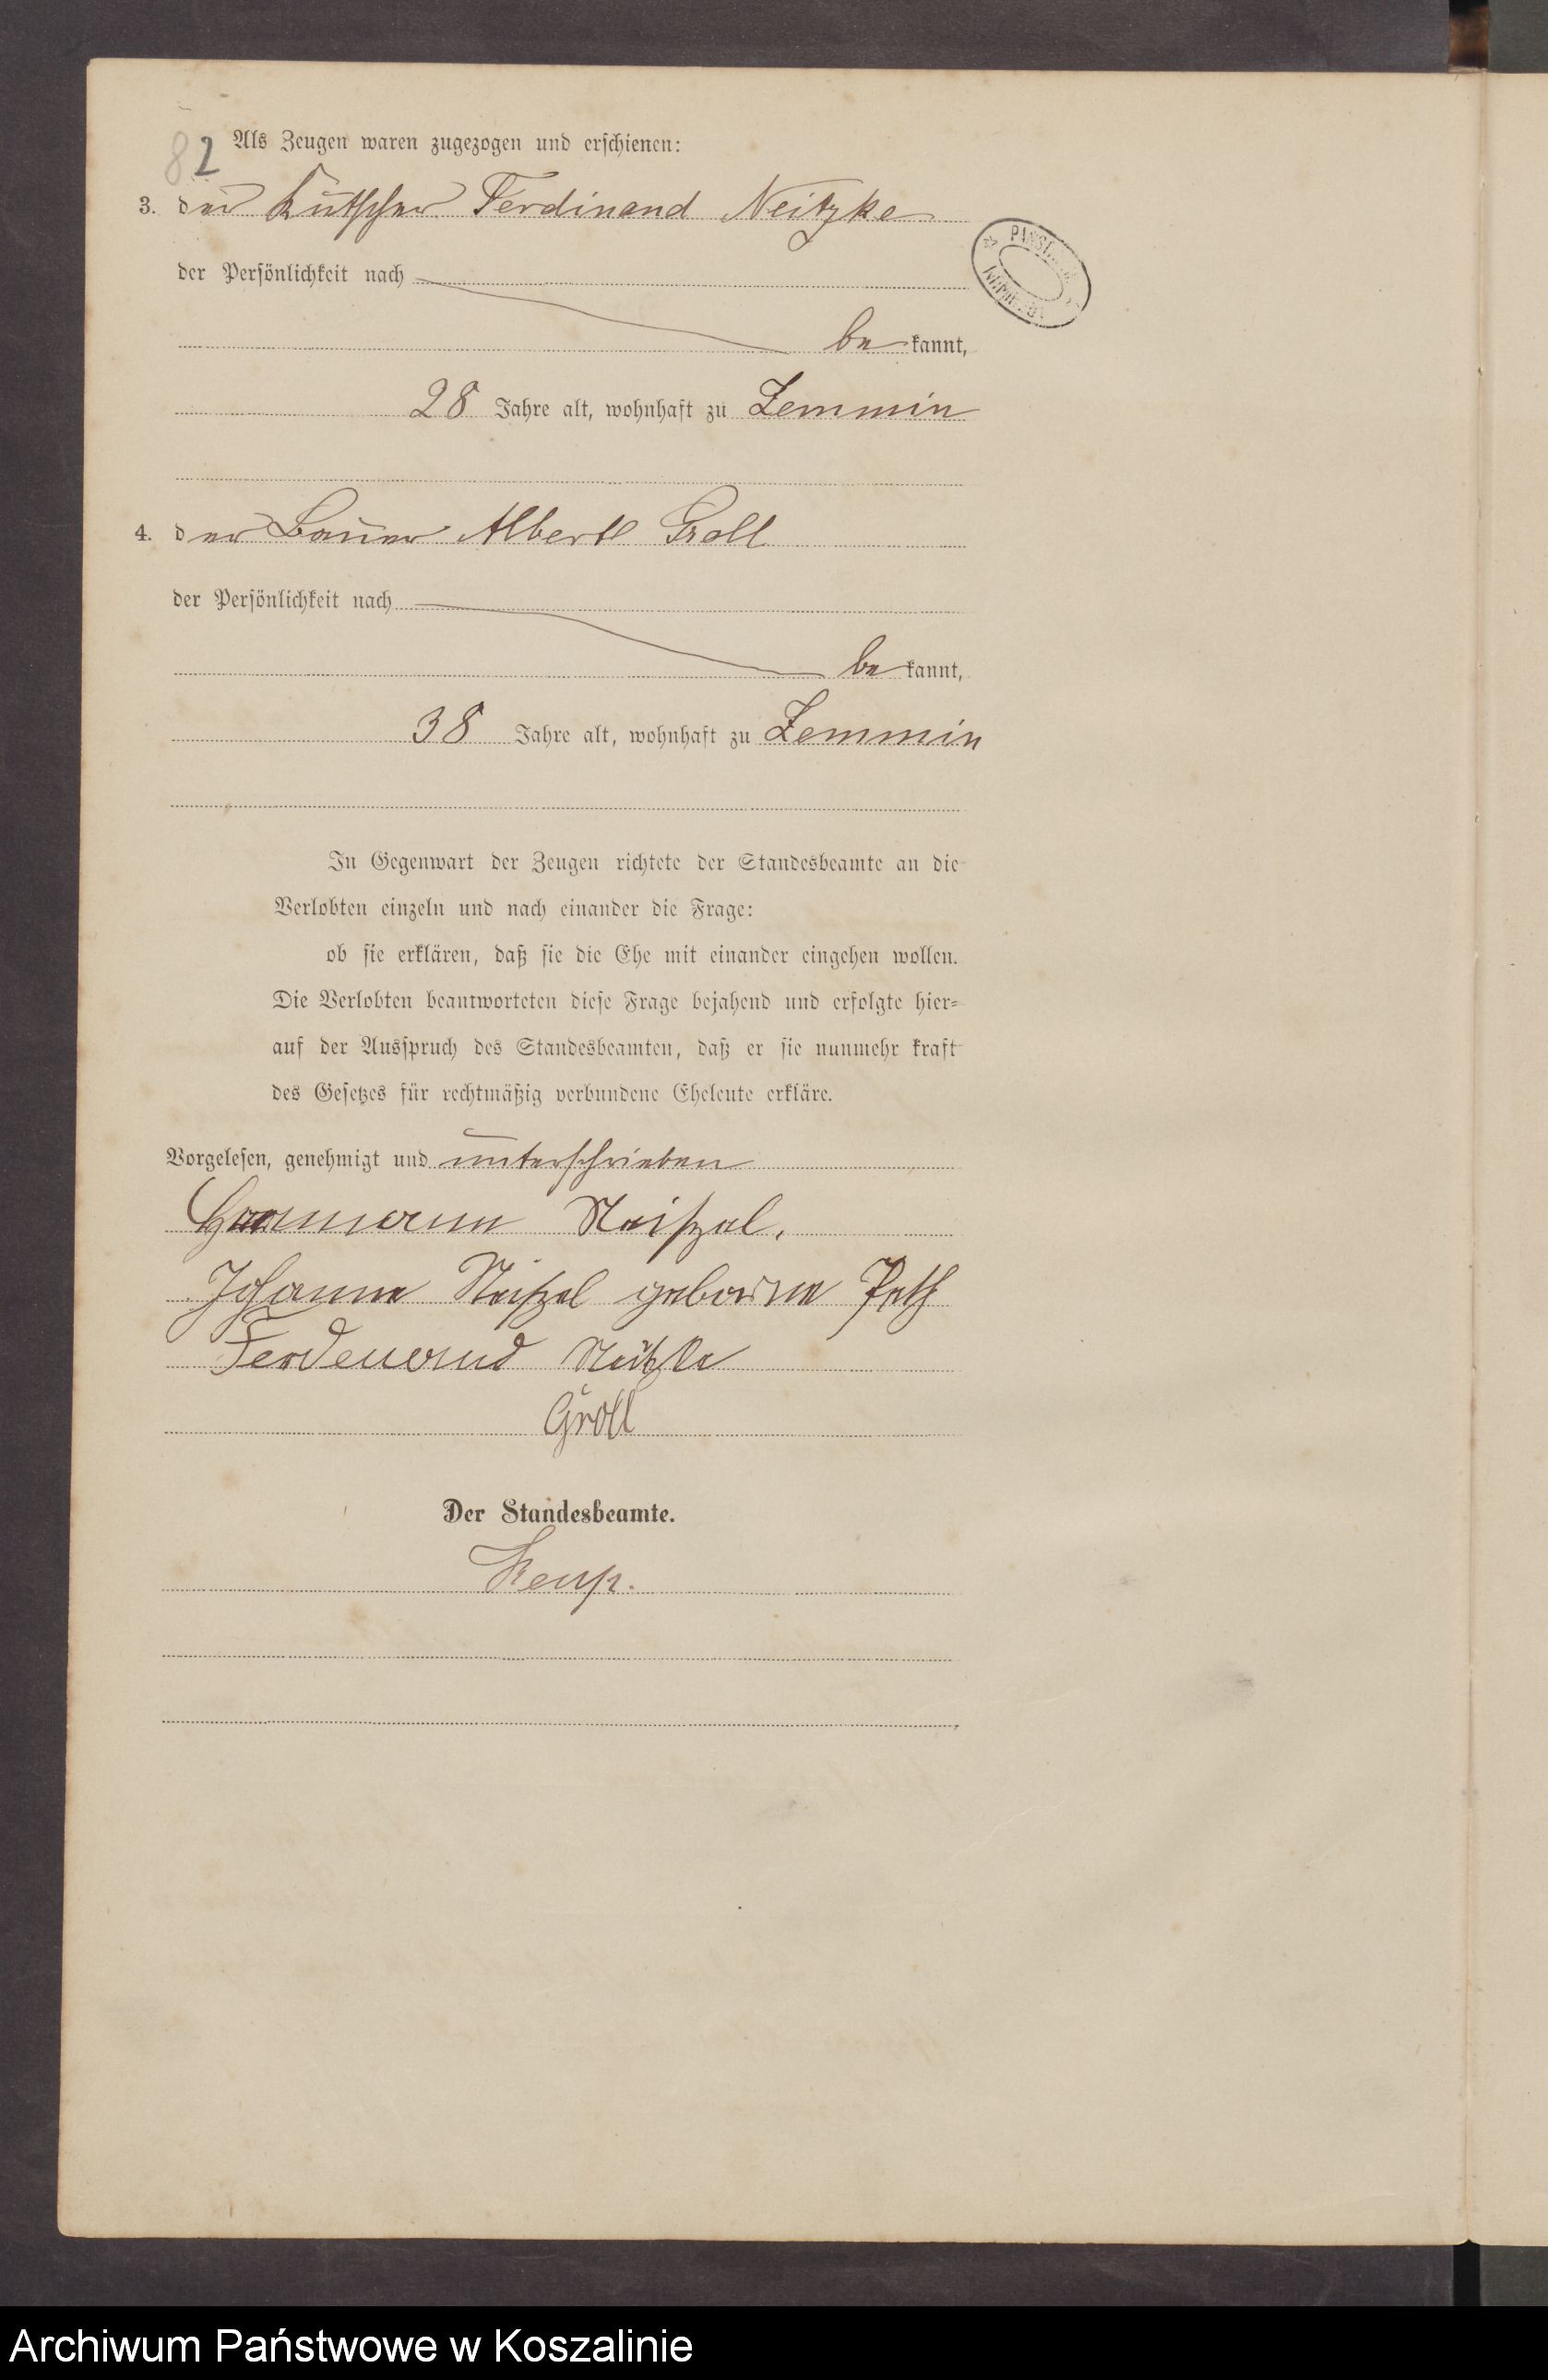 82
Als Zeugen waren zugezogen und erschienen:
3. der Kutscher Ferdinand Neitzke
der Persönlichkeit nach
bekannt,
28 Jahre alt, wohnhaft zu Zemmin
4. der Bauer Albert Groll
der Persönlichkeit nach
bekannt,
38 Jahre alt, wohnhaft zu Zemmin
In Gegenwart der Zeugen richtete der Standesbeamte an die
Verlobten einzeln und nach einander die Frage:
ob sie erklären, daß sie die Ehe mit einander eingehen wollen.
Die Verlobten beantworteten diese Frage bejahend und erfolgte hier-
auf der Ausspruch des Standesbeamten, daß er sie nunmehr kraft
des Gesetzes für rechtmäßig verbundene Eheleute erkläre.
Vorgelesen, genehmigt und unterschrieben
Hermann Neitzel.
Johanne Neitzel geborne Peth
Ferdenand Neitzke
Groll
Der Standesbeamte.
Archiwum Państwowe w Koszalinie